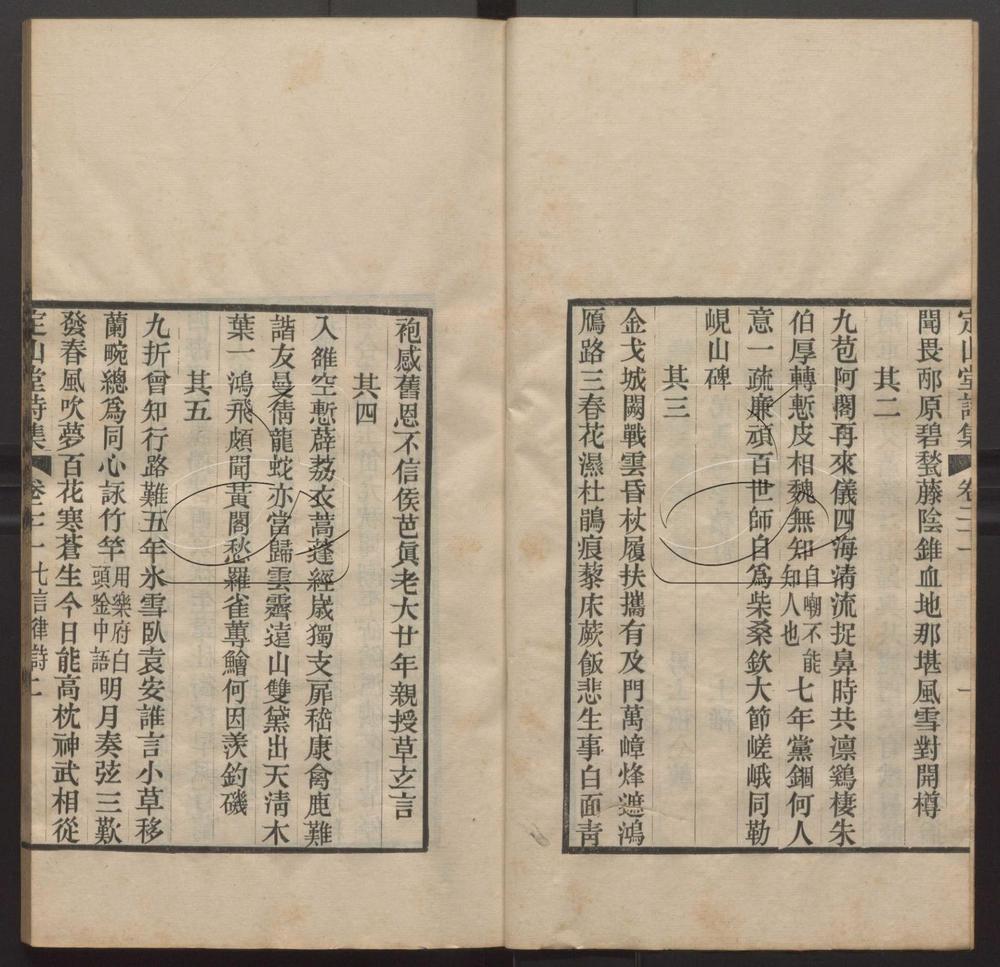 定山堂詩集 卷二十一
聞畏邴原碧甃藤陰錐血地那堪風雪對開樽
其二
九苞阿閣再來儀四海淸流捉鼻時共凛鷄棲朱
伯厚轉慙皮相魏無知自嘲不能知人也七年黨錮何人
意一疏廉頑百世師自爲柴桑欽大節嵯峨同勒
峴山碑
其三
金戈城闕戰雲昏杖履扶攜有及門萬嶂烽遮鴻
鴈路三春花濕杜鵑痕藜床蕨飯悲生事白面靑
袍感舊恩不信侯芭眞老大廿年親授草玄言
其四
入雒空慙薜荔衣蒿蓬經歲獨支扉嵇康禽鹿難
諧友曼倩龍蛇亦當歸雲霽遠山雙黛出天淸木
葉一鴻飛頗聞黃閣愁羅雀蓴鱠何因羨釣磯
其五
九折曾知行路難五年氷雪臥袁安誰言小草移
蘭畹總爲同心詠竹竿用樂府白頭唫中語明月奏弦三歎
發春風吹夢百花寒蒼生今日能高枕神武相從
定山堂詩集 卷二十一 七言律詩二